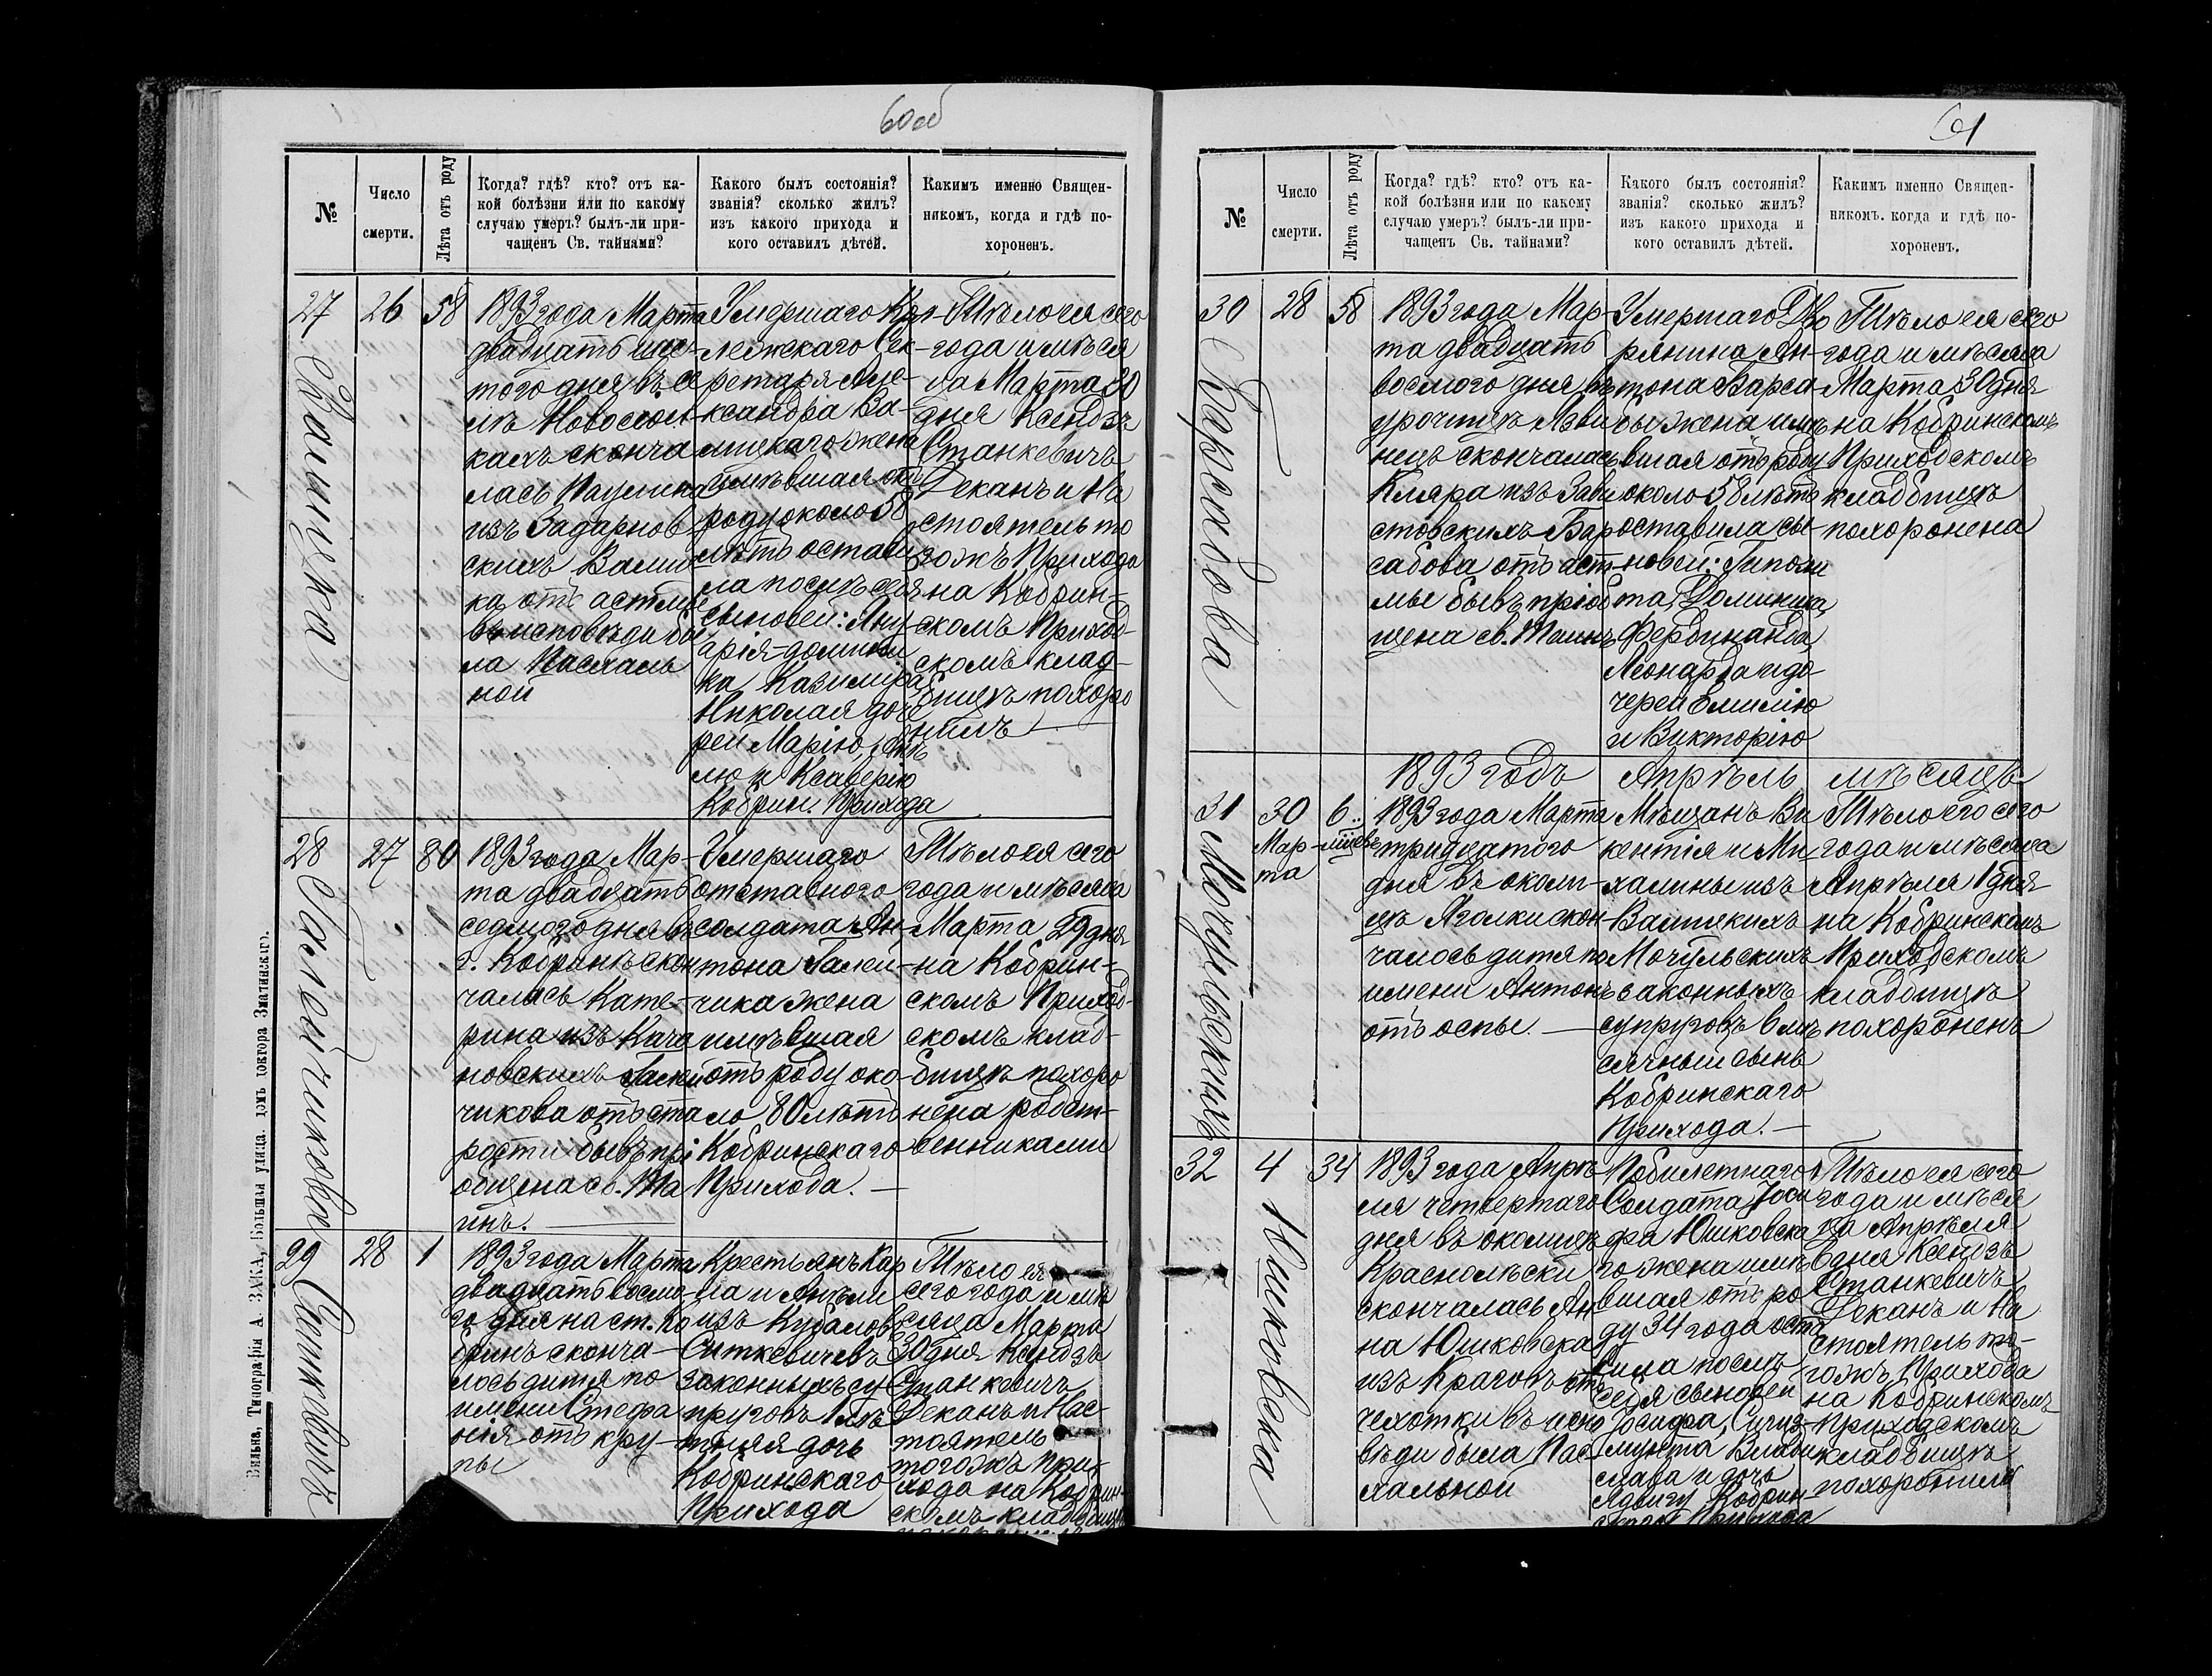 60об
№
Число
смерти.
Лѣта отъ роду
Когда? гдѣ? кто? отъ ка-
кой болѣзни или по какому
случаю умеръ? былъ-ли при-
чащенъ Св. тайнами?
Какого былъ состоянія?
званія? сколько жилъ?
изъ какого прихода и
кого оставилъ дѣтей.
Какимъ именно Священ-
никомъ, когда и гдѣ по-
хороненъ.
27
Валицка
26
58
1893 года Марта
двадцать шес-
того дня въ се
лѣ Новосіол
кахъ сконча
лась Паулина
изъ Задарнов
скихъ Валиц
ка отъ астмы
въ исповѣди бы
ла Пасхаль
ной
Умершаго Кол-
лежскаго Сек-
ретаря Але-
ксандра Ва-
лицкаго жена
имѣвшая отъ
роду около 58
лѣтъ остави
ла послѣ себя
сыновей: Яну-
арія-Домини
ка Казиміра
Николая доче
рей Марію,
лю и Ксаверію
Кобрин. Прихода
Тѣло ея сего
года и мѣся
ца Марта 30
дня Ксендзъ
Станкевичъ
Деканъ и На
стоятель то
гожъ Прихода
на Кобрин-
скомъ Приход-
скомъ клад-
бищѣ похоро
нилъ
28
Галейчикова
27
80
1893 года Мар-
та двадцать
седмого дня въ
г. Кобринѣ скон
чалась Кате-
рина изъ Кача
новскихъ Галей
чикова отъ ста
рости бывъ прі
общена св. Та
инъ.
Умершаго
отставного
солдата Ан-
тона Галей-
чика жена
имѣвшая
отъ роду око-
ло 80 лѣтъ
Кобринскаго
Прихода.
Тѣло ея сего
года и мѣсяца
Марта 29 дня
на Кобрин-
скомъ Приход-
скомъ клад-
бищѣ похоро
нена родст-
венниками
29
Ситкевичъ
28
1
1893 года Марта
двадцать восмо-
го дня на ст. Ко
бринъ сконча-
лось дитя по
имени Стефа
нія отъ кру-
пы
Крестьянъ Кар
ла и Анѣли
изъ Кубаловъ
Ситкевичевъ
законныхъ су
пруговъ 1 лѣ
тняя дочь
Кобринскаго
Прихода
Тѣло ея
сего года и мѣ
сяца Марта
30 дня Ксендзъ
Станкевичъ
Деканъ и Нас-
тоятель
тогожъ При-
хода на Кобрин-
скомъ кладбищѣ
Вильна, Типографія А. ЗАКА, Большая улица. домъ доктора Зматинскаго.
61
№
Число
смерти.
Лѣта отъ роду
Когда? гдѣ? кто? отъ ка-
кой болѣзни или по какому
случаю умеръ? былъ-ли при-
чащенъ Св. тайнами?
Какого былъ состоянія?
званія? сколько жилъ?
изъ какого прихода и
кого оставилъ дѣтей.
Какимъ именно Священ-
никомъ. когда и гдѣ по-
хороненъ.
30
Барсабова
28
58
1893 года Мар-
та двадцать
восмого дня въ
урочищѣ Язви
нецъ скончалась
Кляра изъ Зави
стовскихъ Бар
сабова отъ аст-
мы бывъ пріоб
щена св. Таинъ
Умершаго Дво
рянина Ан-
тона Барса-
бы жена имѣ
вшая отъ роду
около 58 лѣтъ
оставила сы-
новей: Ипполи
та, Доминика,
Фердинанда,
Леонарда и до
черей Емилію
и Викторію
Тѣло ея сего
года и мѣсяца
Марта 30 дня
на Кобринскомъ
Приходскомъ
кладбищѣ
похоронена
1893 годъ Апрѣль мѣсяцъ
31
Мочульскихъ
30
Мар-
та
6
1893 года Марта
тридцатого
дня въ околи-
цѣ Яголки скон-
чалось дитя по
имени Антонъ
отъ оспы.
Мѣщанъ Ви
кентія и Ми
халины изъ
Валицкихъ
Мочульскихъ
законныхъ
супруговъ 6 мѣ
сячный сынъ
Кобринскаго
Прихода.
Тѣло его сего
года и мѣсяца
Апрѣля 1 дня
на Кобринскомъ
Приходскомъ
кладбищѣ
похороненъ
32
Юшковска
4
34
1893 года Апрѣ
ля четвертаго
дня въ околицѣ
Краснолѣски
скончалась Ан
на Юшковска
изъ Краговъ отъ
чехотки въ испо
вѣди была Пас-
хальной
Побилетнаго
Солдата Іоси
фа Юшковска
го жена имѣ
вшая отъ ро
ду 34 года оста
вила послѣ
себя сыновей
Іосифа, Сигиз-
мунта Влади
слава и дочь
Ядвигу Кобрин-
скаго Прихода
Тѣло ея сего
года и мѣся
ца Апрѣля
6 дня Ксендзъ
Станкевичъ
Деканъ и На
стоятель то-
гожъ Прихода
на Кобринскомъ
Приходскомъ
кладбищѣ
похоронилъ